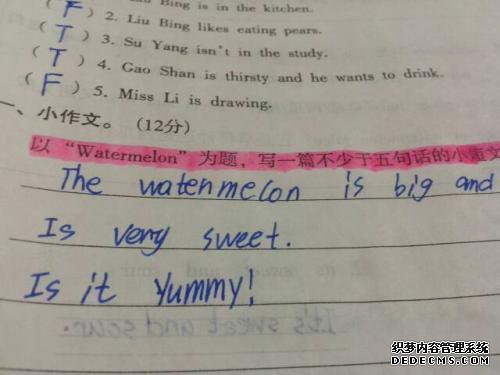 (F) Bing is in the kitchen.
(T) 2. Liu Bing likes eating pears.
(T) 3. Su Yang isn't in the study.
(T) 4. Gao Shan is thirsty and he wants to drink.
(F) 5. Miss Li is drawing.
一、小作文。(12分)
以“Watermelon”为题,写一篇不少于五句话的小
The watenmelon is big and
Is very sweet.
Is it Yummy!
It's sweet and sour.
织梦内容管理系统
DEDECMS.COM